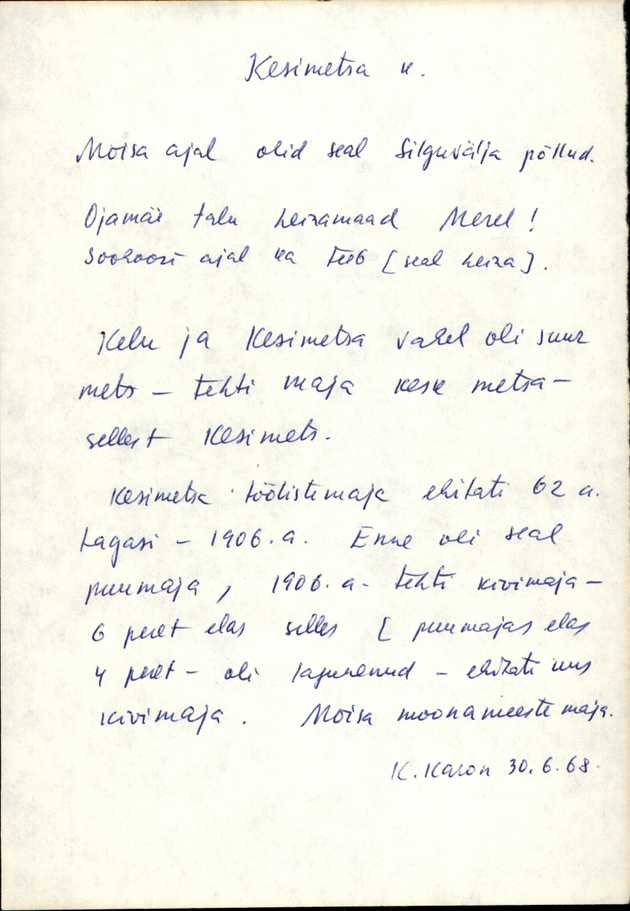 Kesimetsa k.
Moisa ajal olid seal Silguvälja põllud.
Ojamäe talu heinamaad Merel!
Soohoori ajal ka teeb [seal heina].
Kelu ja Kesimetsa vahel oli suur
mets – tehti maja keske metsa –
sellest Kesimets.
Kesimetsa töölistemaja ehitati 62 a.
tagasi – 1906.a. Enne oli seal
puumaja, 1906.a. tehti kivimaja –
6 peret elas selles [puumajas elas
4 peret – oli lagunenud – ehitati uus
kivimaja. Moisa moonameeste maja.
K. Karon 30.6.68.